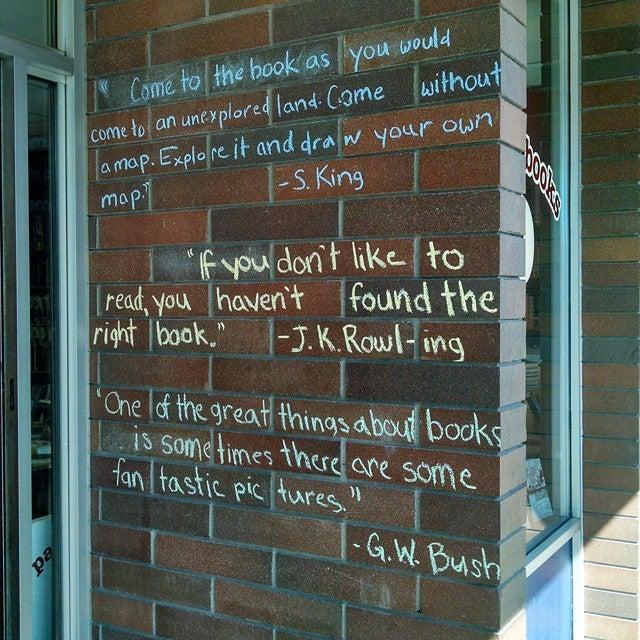 " Come to the book as you would
come to an unexplored land. Come without
a map. Explore it and draw your own
map."
-S. King
"If you don't like to
read, you haven't found the
right book." -J.K. Rowl-ing
"One of the great things about books
is sometimes there are some
fantastic pictures."
-G.W. Bush
books
pa